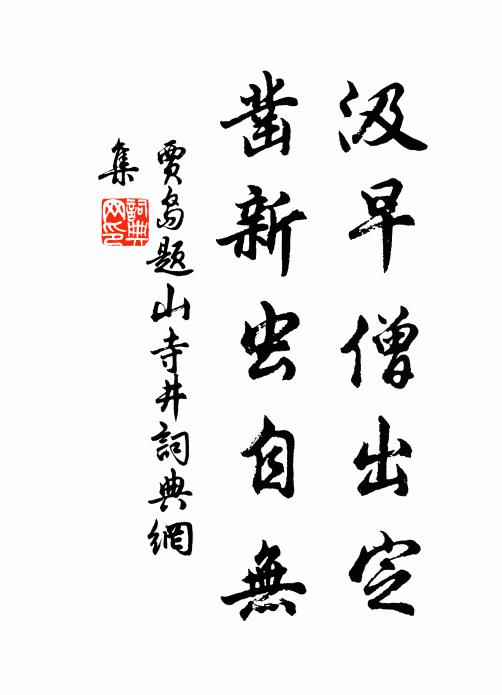 汲早僧出定
凿新虫自無
賈島题山寺井詞典網
集
詞典
网印